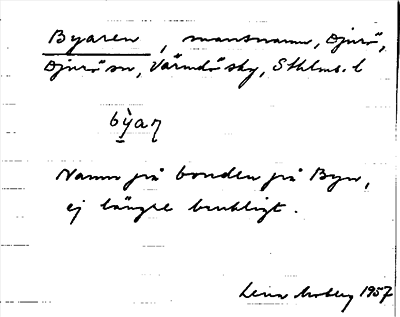 Byaren, mansnamn, Djurö,
Djurö sn, Värmdö sky, Sthlms. l
bya
Namn på bonden på Byn,
ej längre brukligt.
Lena 1957